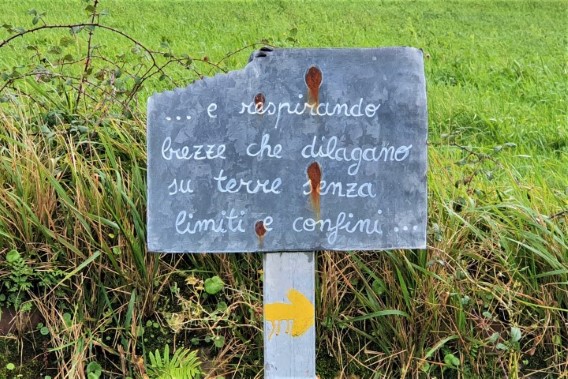 ... e respirando
brezze che dilagano
su terre senza
limiti e confini ...